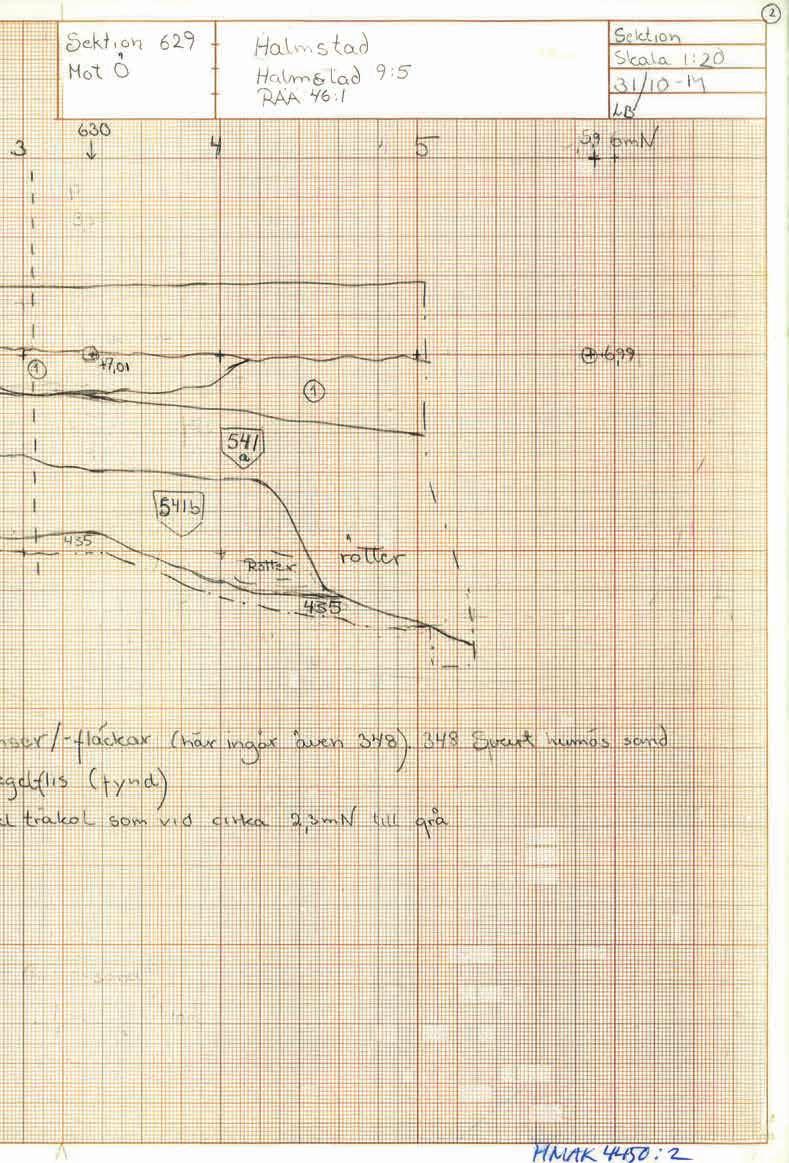 2
Sektion 629
Mot Ö
Halmstad
Halmstad 9:5
RAÄ 46:1
Sektion
Skala 1:20
31/10-14
LB
3
630
4
5
5,9 6mN
1
+7,01
1
+6,99
541
a
541b
435
Rötter
rötter
435
nser/-fläckar (här ingår även 348). 348 Svart humös sand
egelflis (fynd)
träkol som vid cirka 2,3mN till grå
HMAK 4450:2